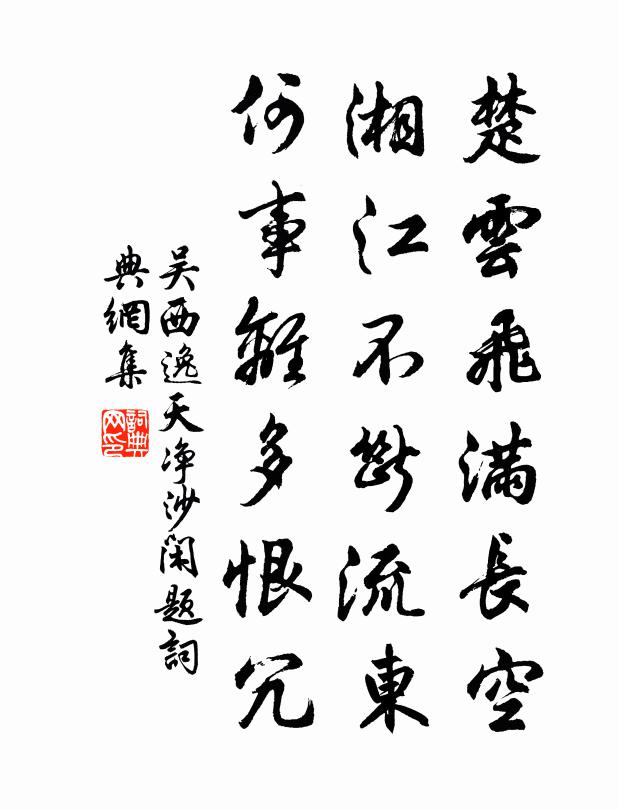 楚雲飛滿長空
湘江不斷流東
何事離多恨冗
吴西逸天净沙閑題詞
典網集
詞典网印